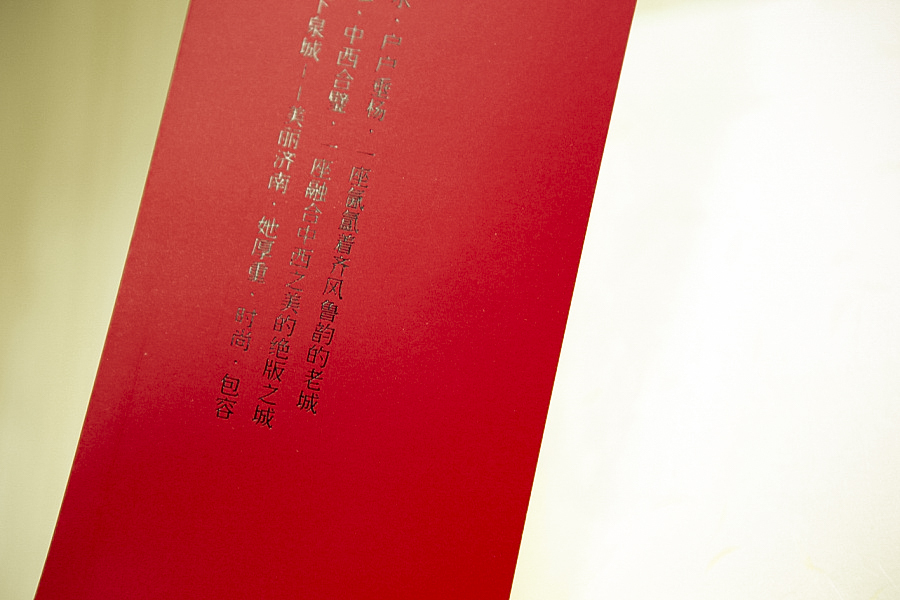 户户垂杨，一座氤氲着齐风鲁韵的老城
中西合璧，一座融合中西之美的绝版之城
下泉城——美丽济南，她厚重、时尚、包容